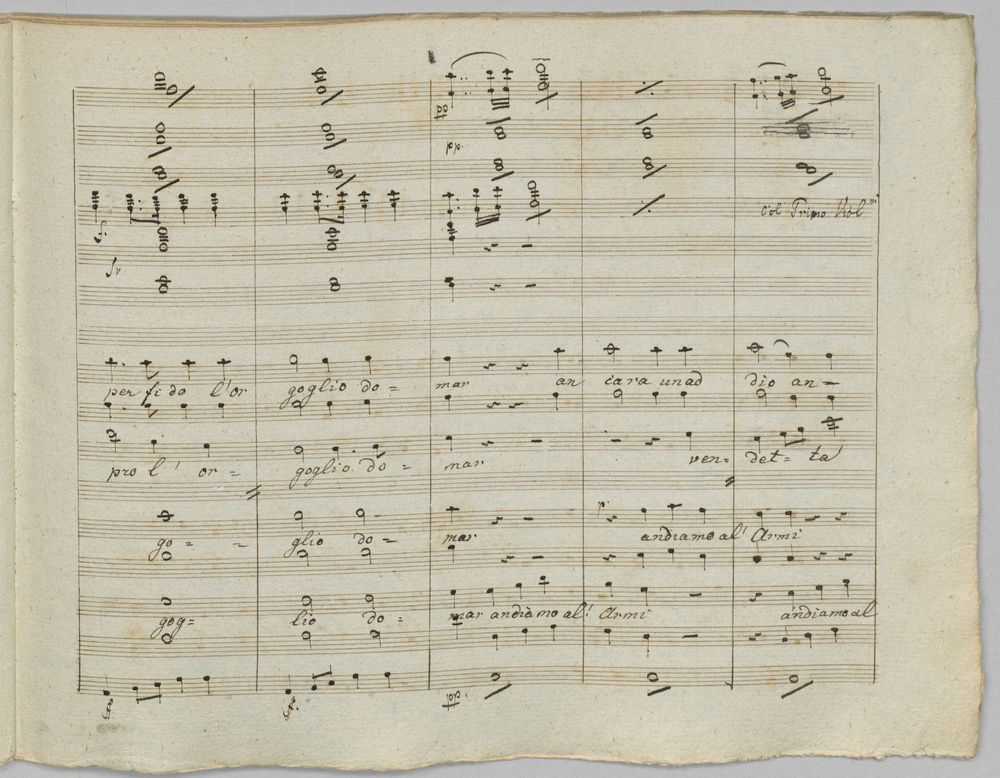 col Primo Viol.ni
per fi do l'or goglio do= mar an cara un ad dio an=
pro l' or= goglio do= mar ven= det= ta
go= = glio do= mar andiamo al' Armi
gog= lio do= mar andiamo al' Armi andiamo al